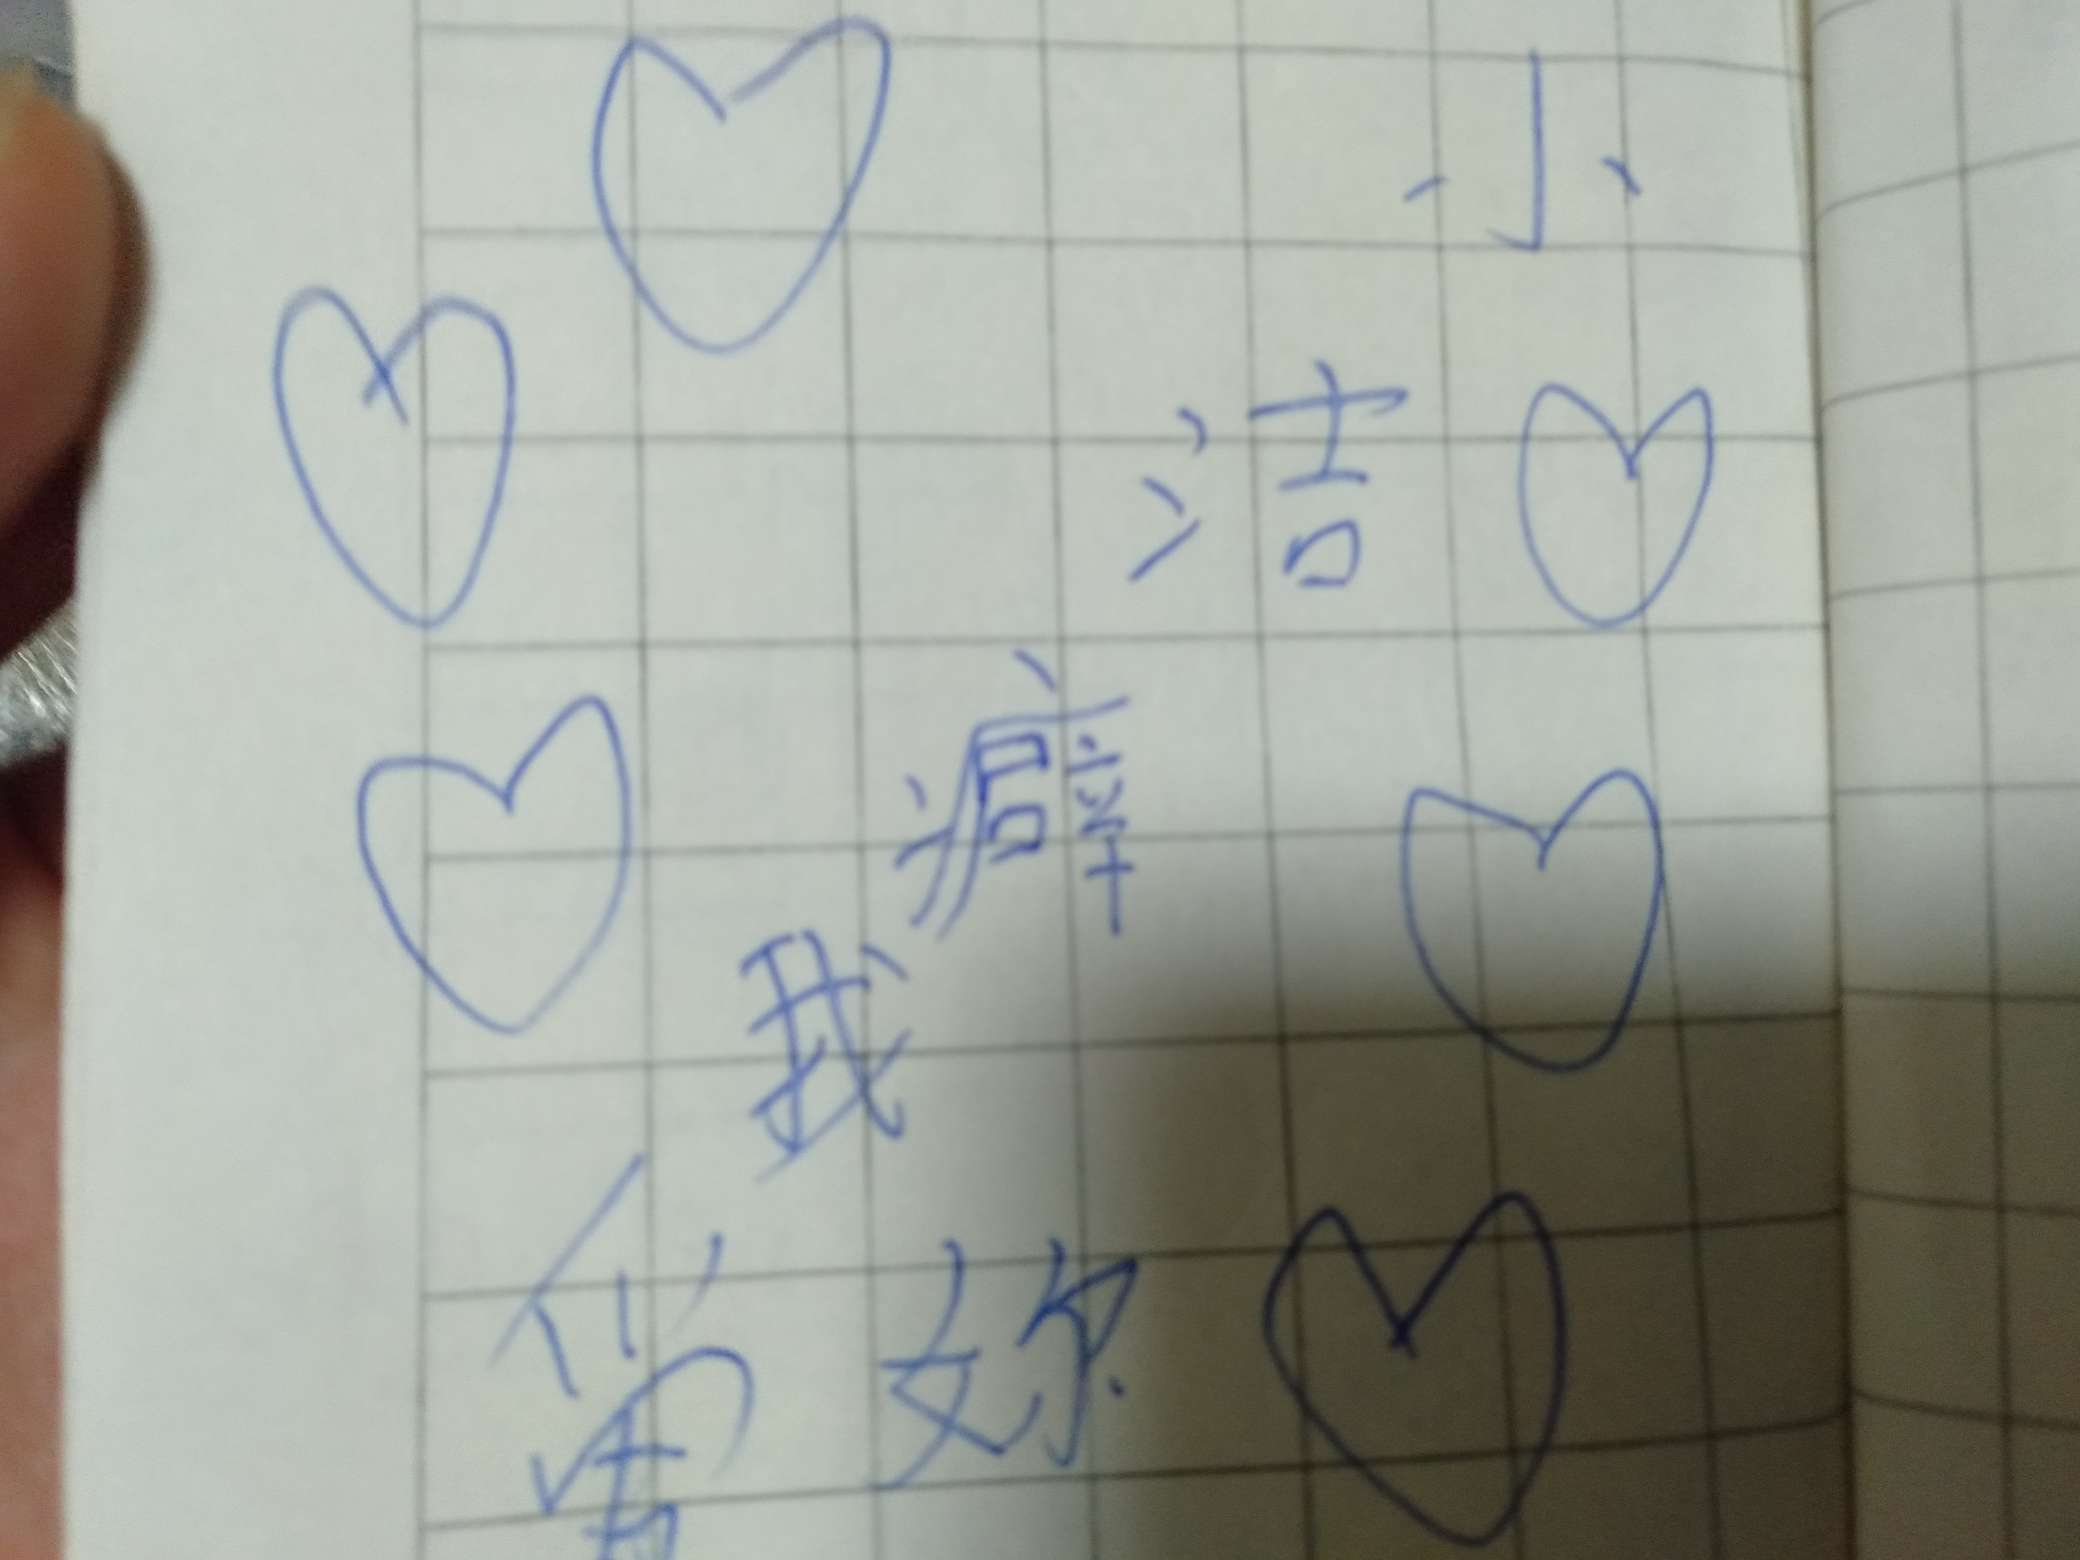 小
洁
癖
我
妳